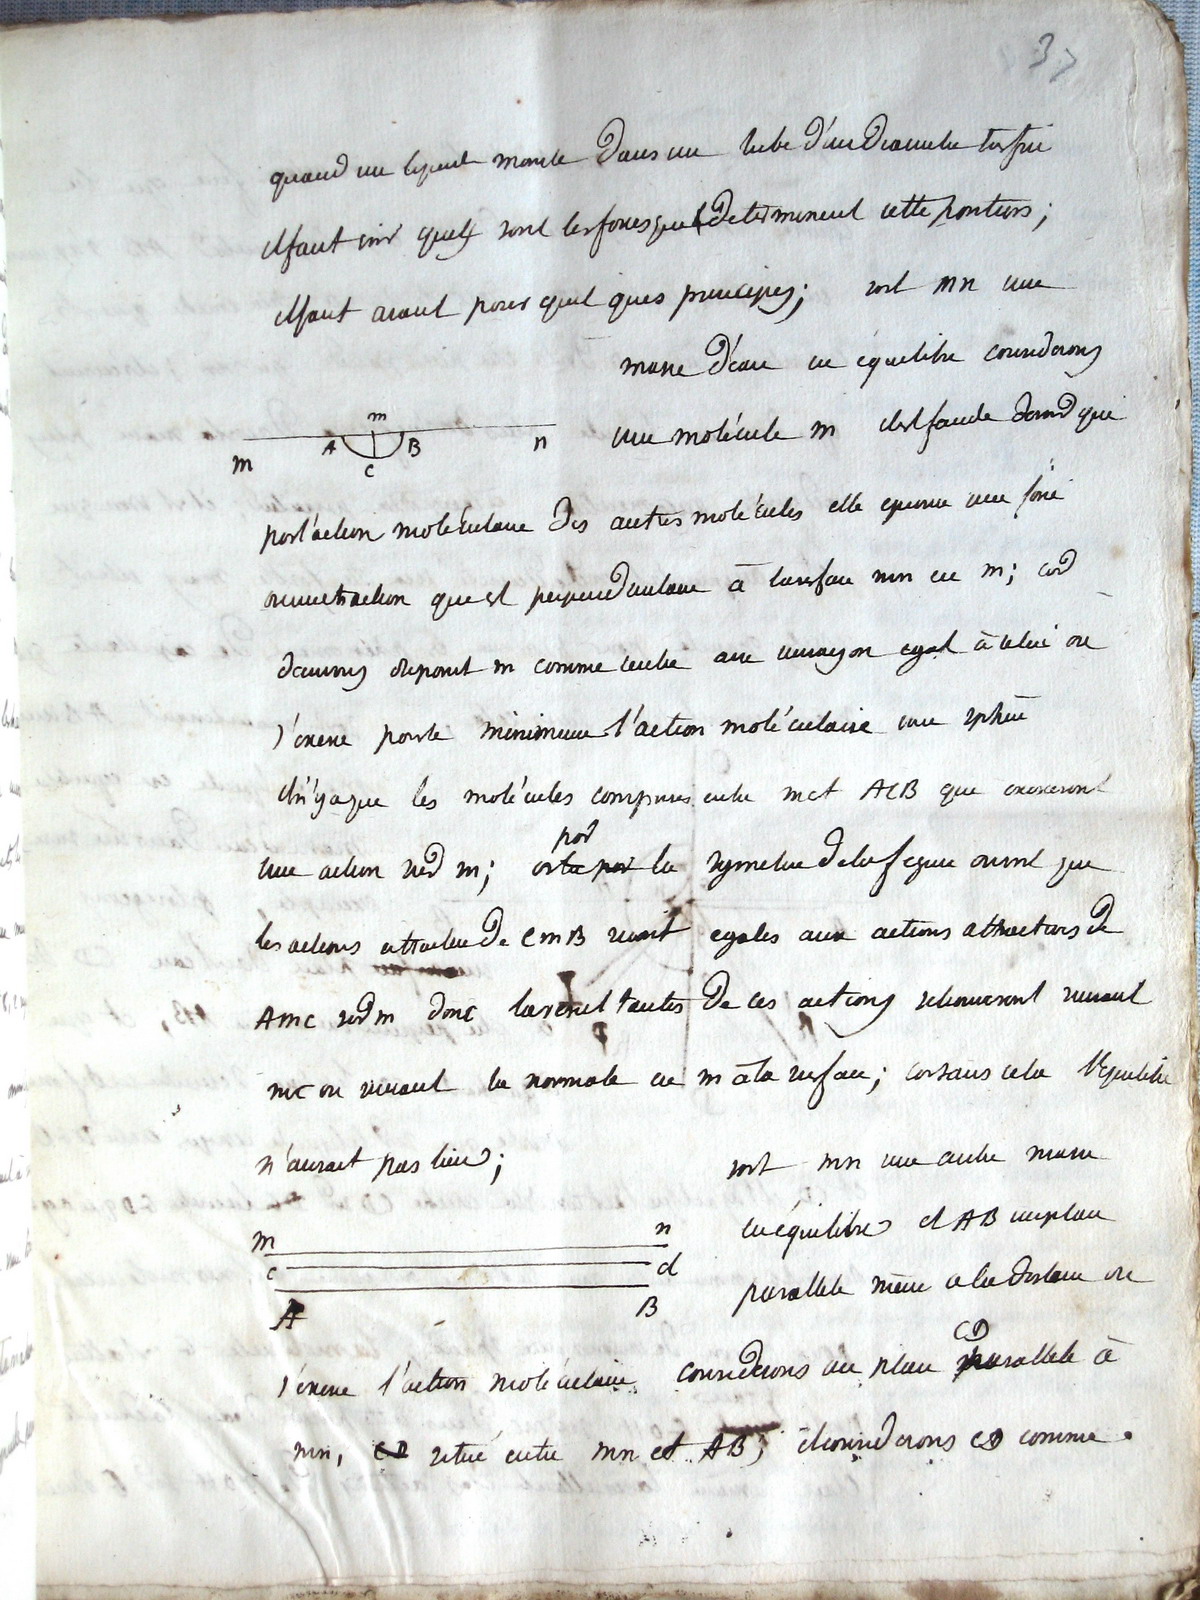 37
quand un liquide monte dans un tube d'un diametre très fin
il faut voir quels sont les forces qui determinent cette position;
il faut avant poser quel ques principes; soit mn une
masse d'eau en équilibre considerons
m
A B
m n
C
une molécule m il est facile de voir que
par l'action moléculaire des autres molécules elle eprouve une force
ou une traction qui est perpendiculaire à la surface mn en m; car
decrivons du point m comme centre avec un rayon egal à celui ou
s'exerce par le minimum l'action moléculaire une sphère
il n'y a que les molécules comprises entre m et ACB que exerceront
une action sur m; or par la symetrie de la figure on voit que
les actions attractive de CmB seront egales aux actions attractives de
AmC sur m donc les resultantes de ces actions se trouveront suivant
mc ou suivant la normale en m à la surface; car sans cela l'équilibre
n'aurait pas lieu; soit mn une autre masse
m n
c d
A B
en équilibre et AB un plan
parallele mené à la distance ou
s'exerce l'action moléculaire considerons un plan CD parallele à
mn, situé entre mn et AB; et considerons CD comme